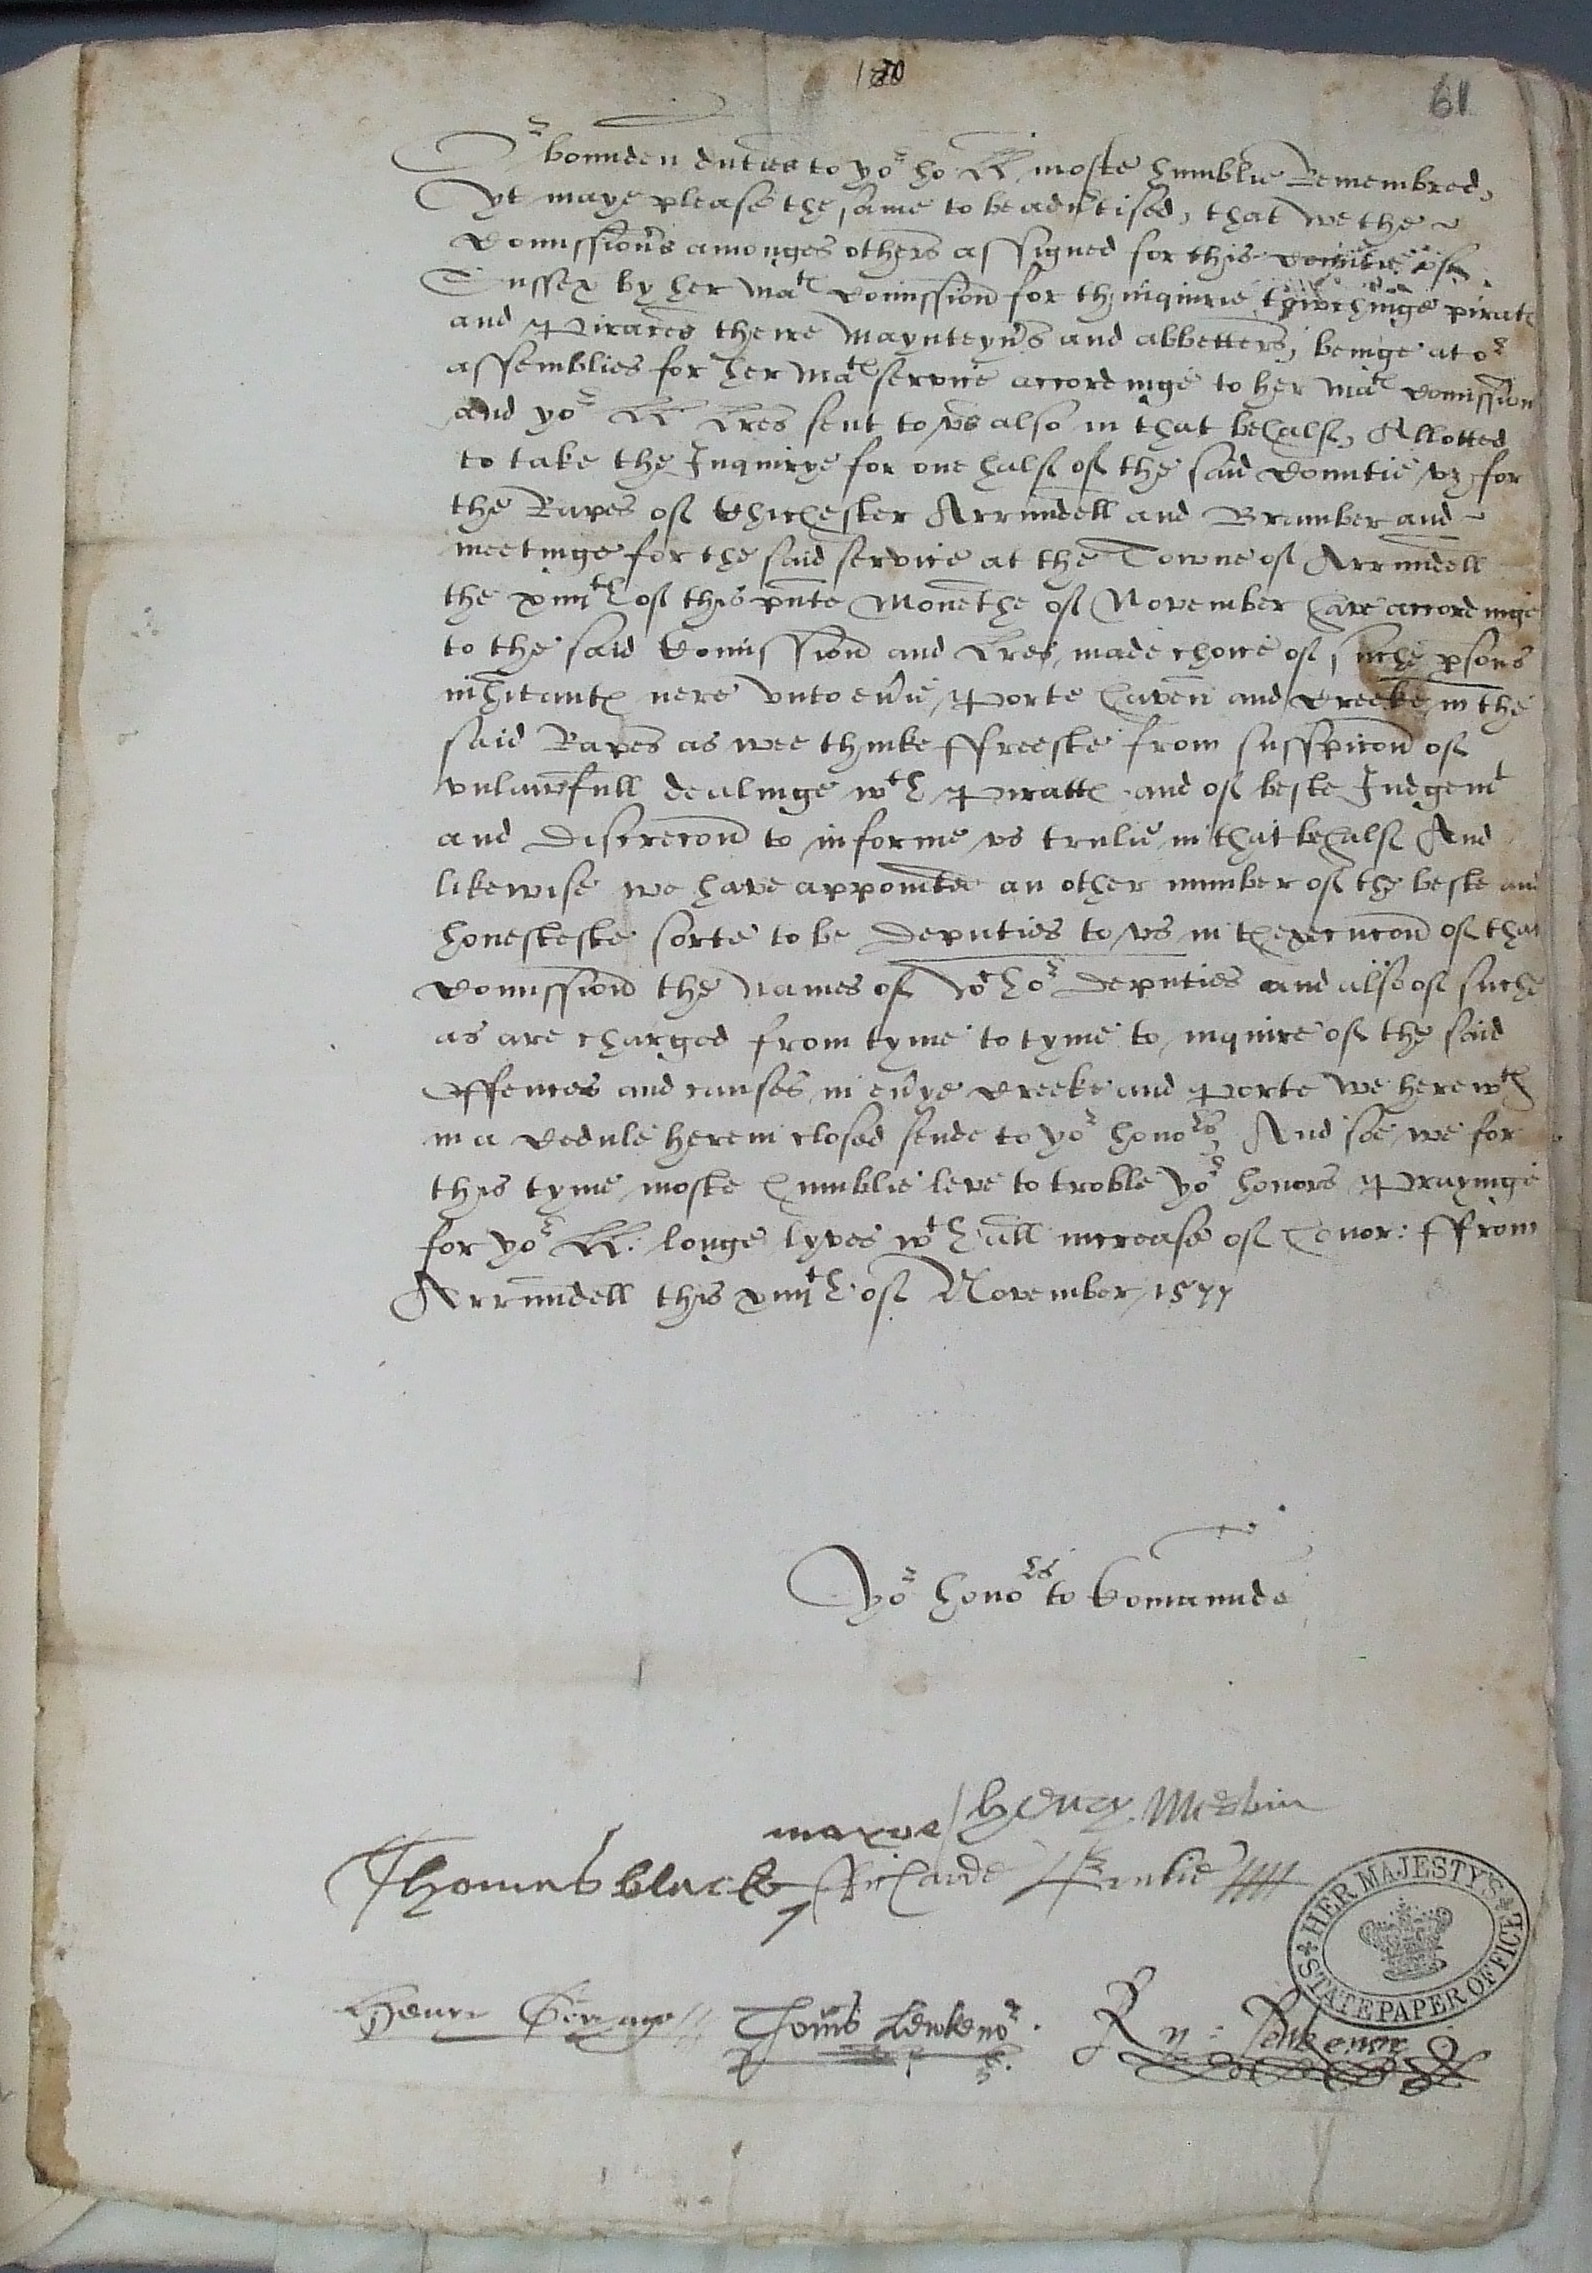 180
61
Or bounden duties to yor ho: LL moste humblie Remembred,
Yt maye please the same to be advtised, that we the
Comissionrs amonges others assigned for this Countie of
Sussex by her Mats Comission for thinquirie towchinge pirats
and Piracies theire Maynteynrs and abbettors, beinge at or
assemblies for her Mats service accordinge to her Mats Comission
and yor LL Lres sent to vs also in that behalf, Allotted
to take the Inquirye for one half of the said Countie, vz, for
the Rapes of Chichester Arrundell and Bramber and
meetinge for the said service at the Towne of Arrundell
the xiiijth of this pnte Monethe of November have accordinge
to the said Comission and Lres, made choice of suche psons
inhitants nere vnto evie, Porte haven and Creeke, in the
said Rapes as wee thinke ffreeste from susspicon of
vnlawfull dealinge wth Piratts and of beste Judgemt
and discrecon to informe vs trulie in that behalf And
likewise we have appointed an other number of the beste and
honesteste sorte to be deputies to vs in thexecucon of that
Comission the names of wch or deputies and also of suche
as are charged from tyme to tyme to inquire of the said
Offences and causes in evye Creeke and Porte we herewth
in a Cedule herein closed sende to yor honors, And soe we for
this tyme moste humblie leve to troble yor honors Prayinge
for yor LL: longe lyves wth all increase of honor: ffrom
Arrundell this xiiijth of November, 1577
Yor honors to Comaunde
Henry Mervin
Thomas blacke Richarde Ernlie
Henri Goringe Thoms Lewkenor Ry: Lewkenor
HER MAJESTY'S STATE PAPER OFFICE